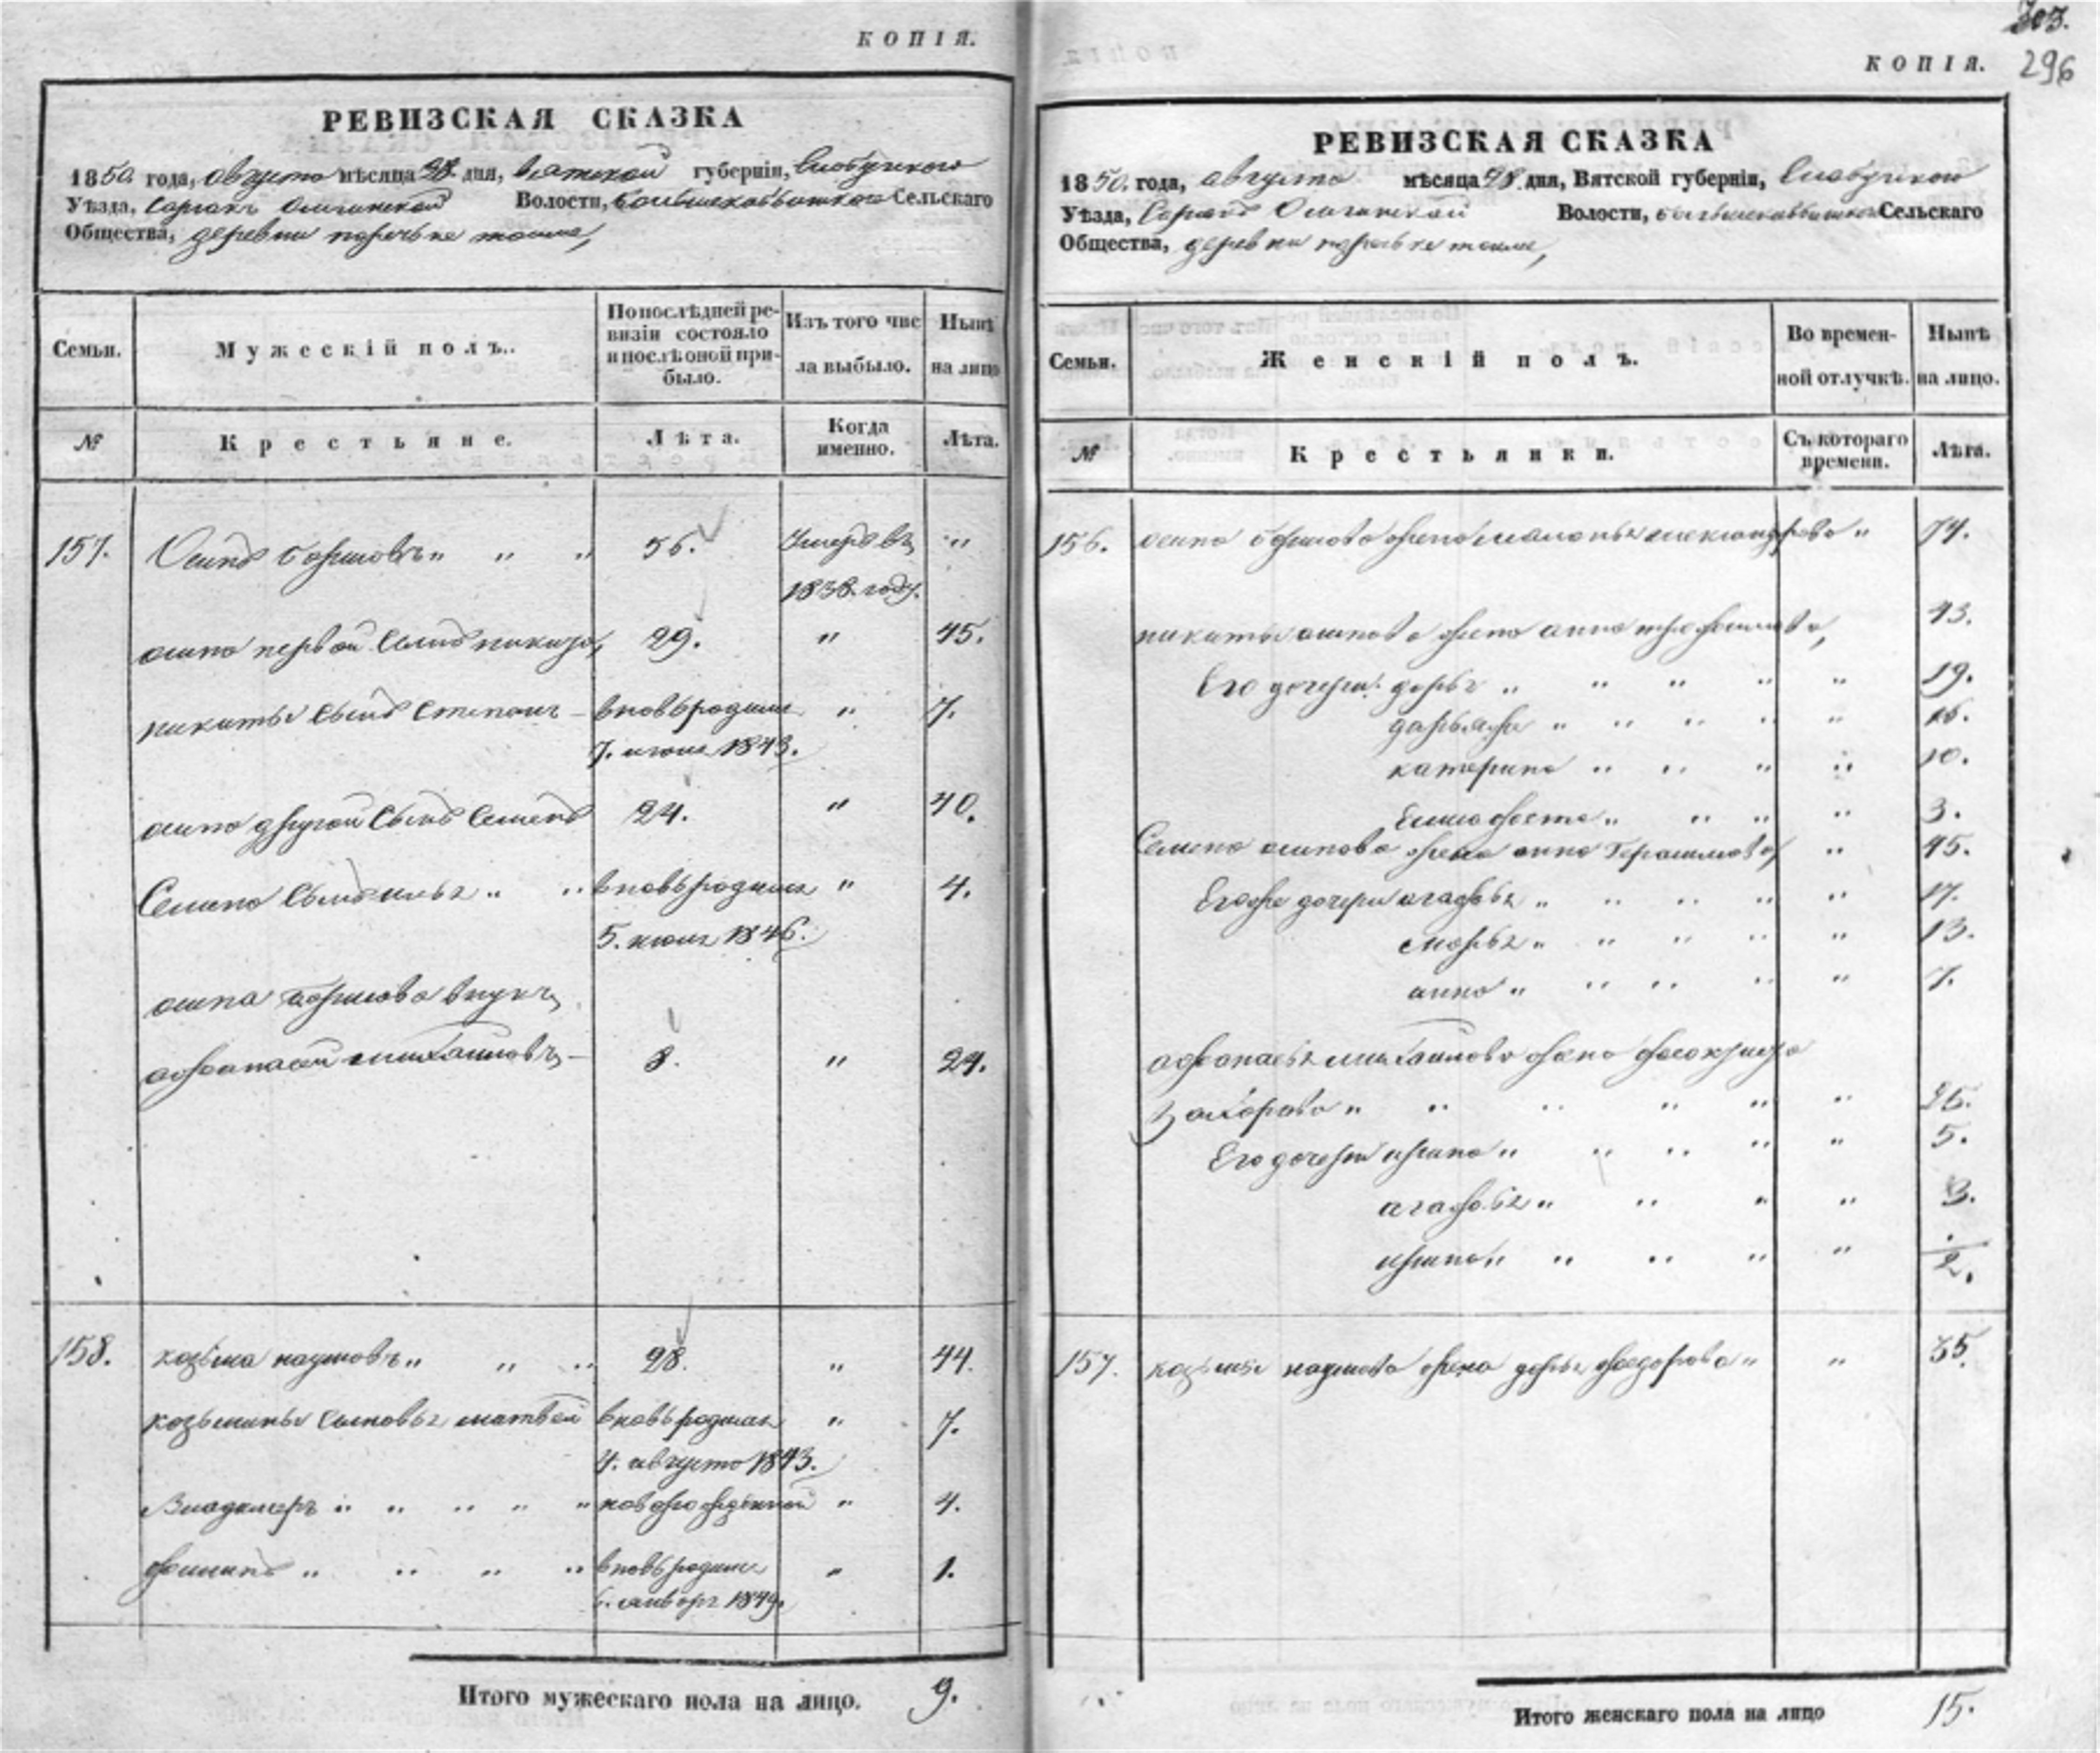 КОПІЯ.
РЕВИЗСКАЯ СКАЗКА
1850. года, августа мѣсяца 28. дня, Вятской губерніи, Елабугского
Уѣзда, Сарсакъ Омгинской Волости, Сельскаго
Общества, деревни
Семьи.
Мужескій полъ.
По послѣдней ре-
визіи состояло
и послѣ оной при-
было.
Изъ того чис
ла выбыло.
Нынѣ
на лицо
№
Крестьяне.
Лѣта.
Когда
именно.
Лѣта.
157. Осипъ Борисовъ „ „ „ 56. Умеръ въ „
1838. году.
осипа первой сынъ никита, 29. „ 45.
никиты сынъ Степанъ – вновь родился „ 7.
7. июня 1843.
осипа другой сынъ Семенъ 24. „ 40.
Семена сынъ илья „ „ вновь родился „ 4.
5. июля 1846.
осипа Борисова внукъ
афонасей михайловъ – 8. „ 24.
158. козьма наумовъ „ „ „ 28. „ 44.
козьмины сыновья матвей вновь родился „ 7.
4. августа 1843.
Владимеръ „ „ „ „ „ новорожденной „ 4.
филипъ „ „ „ „ вновь родился „ 1.
6. января 1849.
Итого мужескаго пола на лицо. 9.
303.
296
КОПІЯ.
РЕВИЗСКАЯ СКАЗКА
1850. года, августа мѣсяца 28. дня, Вятской губерніи, Елабугской
Уѣзда, Сарсакъ Омгинской Волости, Сельскаго
Общества, деревни
Семьи.
Женскій полъ.
Во времен-
ной отлучкѣ.
Нынѣ
на лицо.
№
Крестьянки.
Съ котораго
времени.
Лѣта.
156. осипа борисова жена маланья александрова „ 74.
никиты осипова жена анна трефилова, 43.
Его дочери: дарья „ „ „ „ „ 19.
дарья же „ „ „ „ „ 16.
катерина „ „ „ „ 10.
Елисавета „ „ „ „ 3.
Семена осипова жена анна Герасимова, „ 45.
Егоже дочери агафья „ „ „ „ „ 17.
марья „ „ „ „ „ 13.
анна „ „ „ „ „ 7.
афонасья михайлова жена
захарова „ „ „ „ „ „ 26.
Его дочери ирина „ „ „ „ „ 5.
агафья „ „ „ „ 3.
ирина „ „ „ „ „ 1/2.
157. козьмы наумова жена дарья федорова „ „ 35.
Итого женскаго пола на лицо 15.